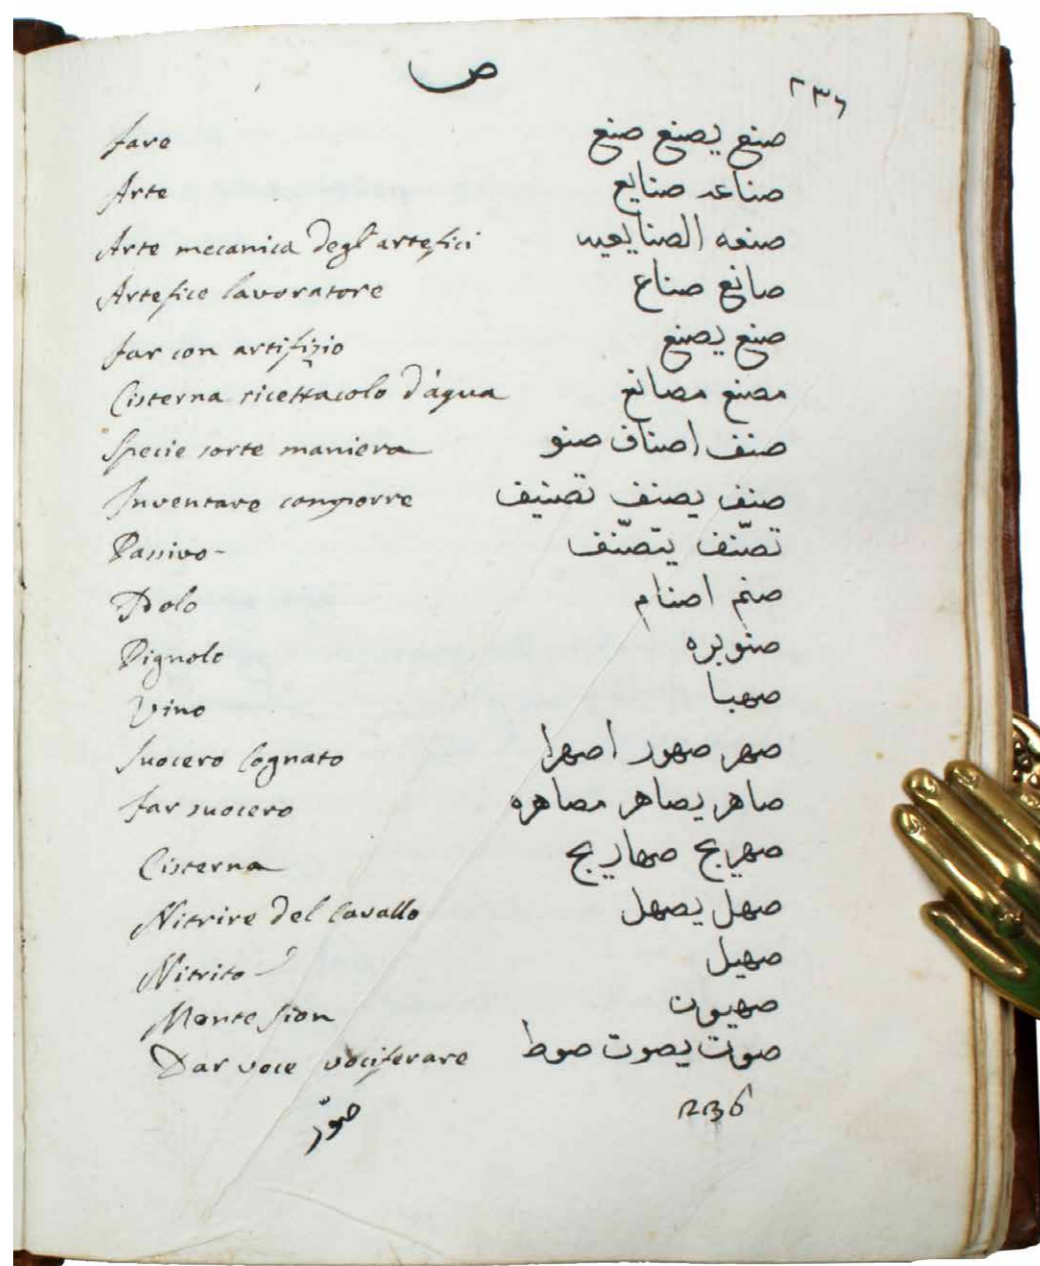 ص
٢٣٦
fare صنع يصنع صنع
Arte صناعه صنايع
Arte mecanica degl'artefici صنعه الصنايعيه
Artefice lavoratore صانع صناع
far con artifizio صنع يصنع
Cisterna ricettacolo d'aqua مصنع مصانع
Specie sorte maniera صنف اصناف صنو
Inventare comporre صنف يصنف تصنيف
Passivo - تصّنف يتصّنف
Idolo صنم اصنام
Pignolo صنوبره
Vino صهبا
Suocero Cognato صهر صهور اصهرا
far suocero صاهر يصاهر مصاهره
Cisterna صهريج صهاريج
Nitrire del Cavallo صهل يصهل
Nitrito صهيل
Monte Sion صهيون
Dar voce vociferare صوت يصوت صوط
صوّر 236